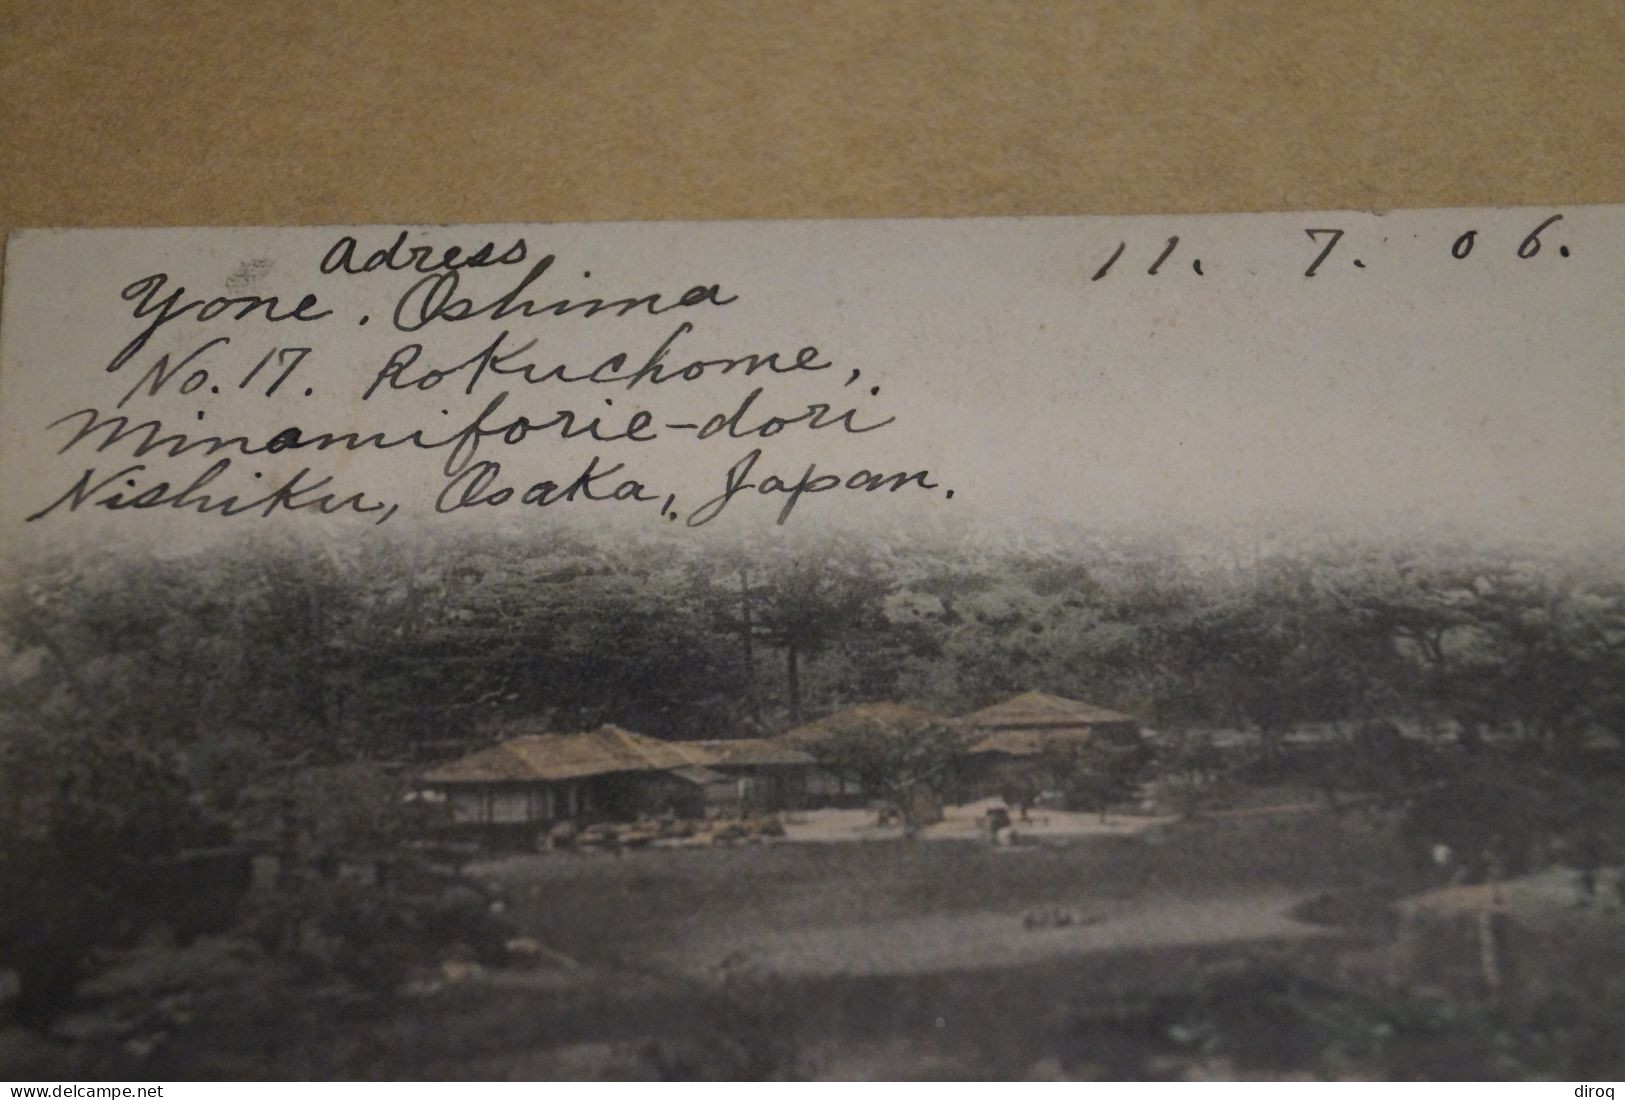 Adress
11. 7. 06.
Yone. Oshima
No. 17. Rokuchome,
Minamiforie-dori
Nishiku, Osaka, Japan.
delcampe.net
diroq